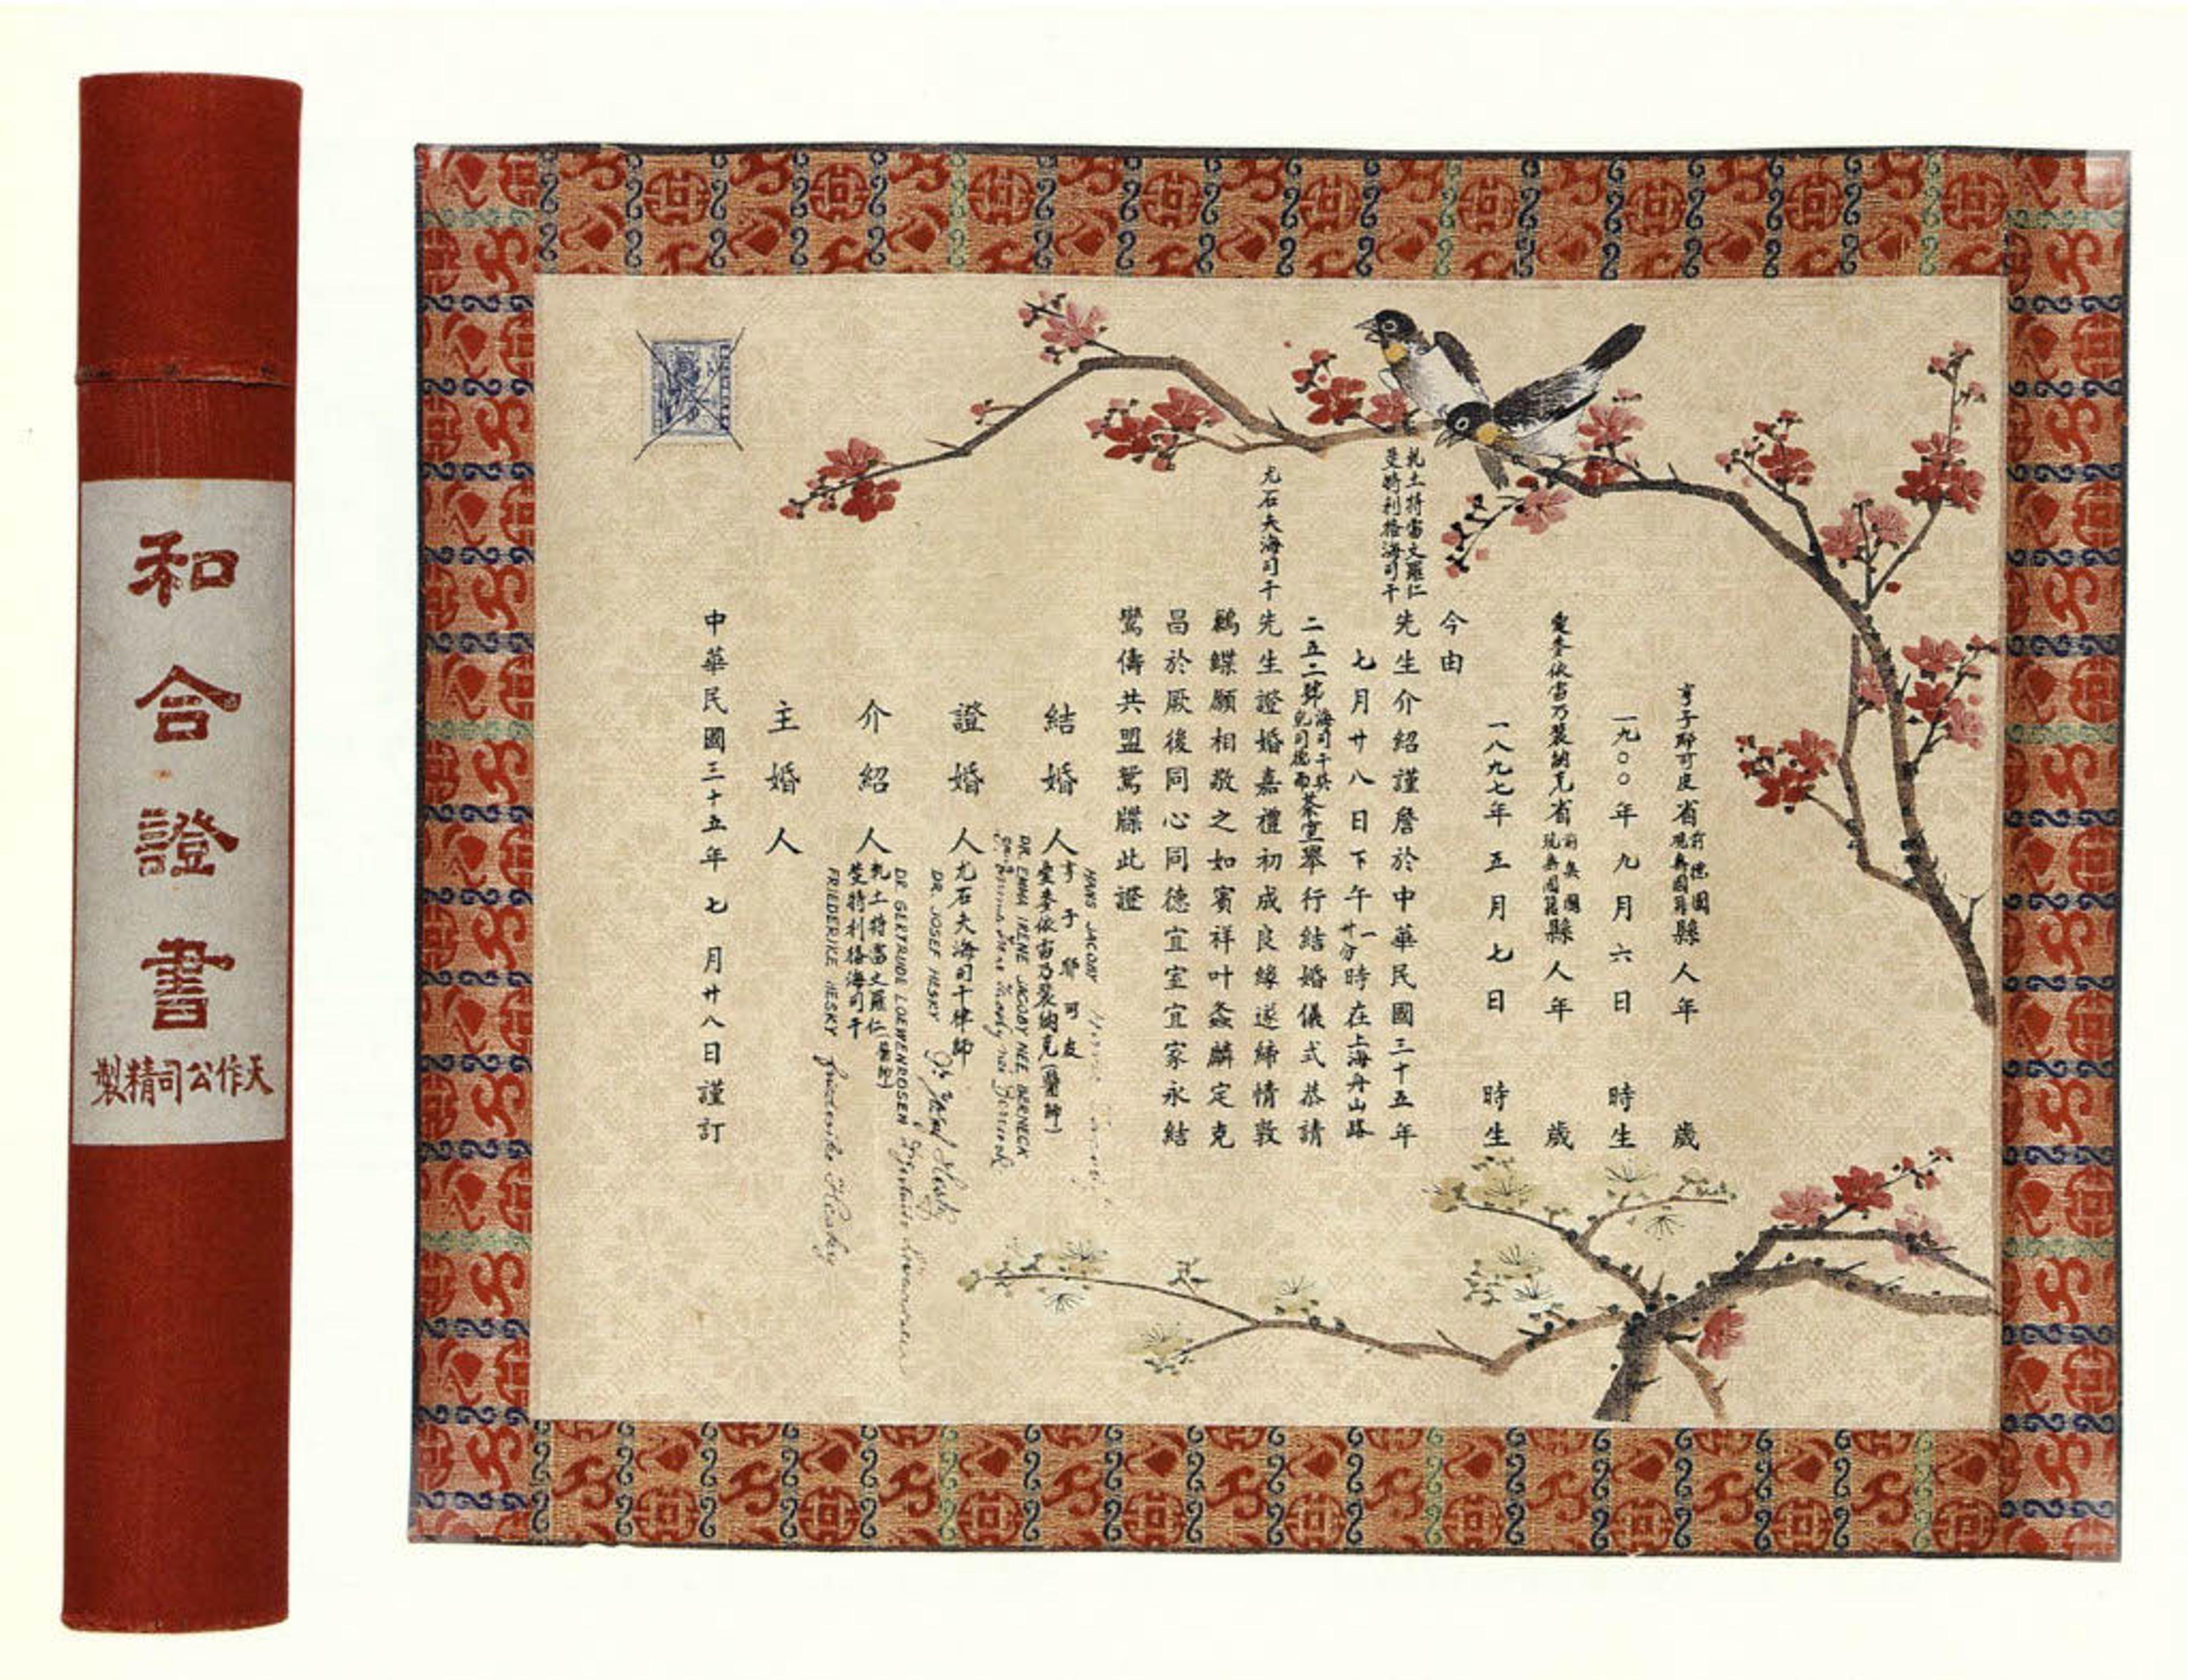 和合證書
天作公司精製
亨子耶可皮省前德國現無國籍縣人年 歲
一九〇〇年九月六日 時生
愛麥依雷乃裴納克省前奧國現無國籍縣人年 歲
一八九七年五月七日 時生
今由
札土特雷文羅仁
斐特利格海司干
先生介紹謹詹於中華民國三十五年
七月廿八日下午一時廿分在上海舟山路
二五二號海司干其茶室舉行結婚儀式恭請
尤石夫海司干先生證婚嘉禮初成良緣遂締情敦
鶼鰈願相敬之如賓祥叶螽麟定克
昌於厥後同心同德宜室宜家永結
鸞儔共盟鴛牒此證
結婚人
HANS JACOBY
亨子耶可皮
愛麥依雷乃裴納克(醫師)
DR. EMMA IRENE JACOBY NEE BERNECK
證婚人
尤石夫海司干律師
DR. JOSEF HESKY Dr Josef Hesky
介紹人
DR GERTRUDE LOEWENROSEN
札土特雷文羅仁(醫師)
斐特利格海司干
FRIEDERIKE HESKY Friederike Hesky
主婚人
中華民國三十五年七月廿八日謹訂